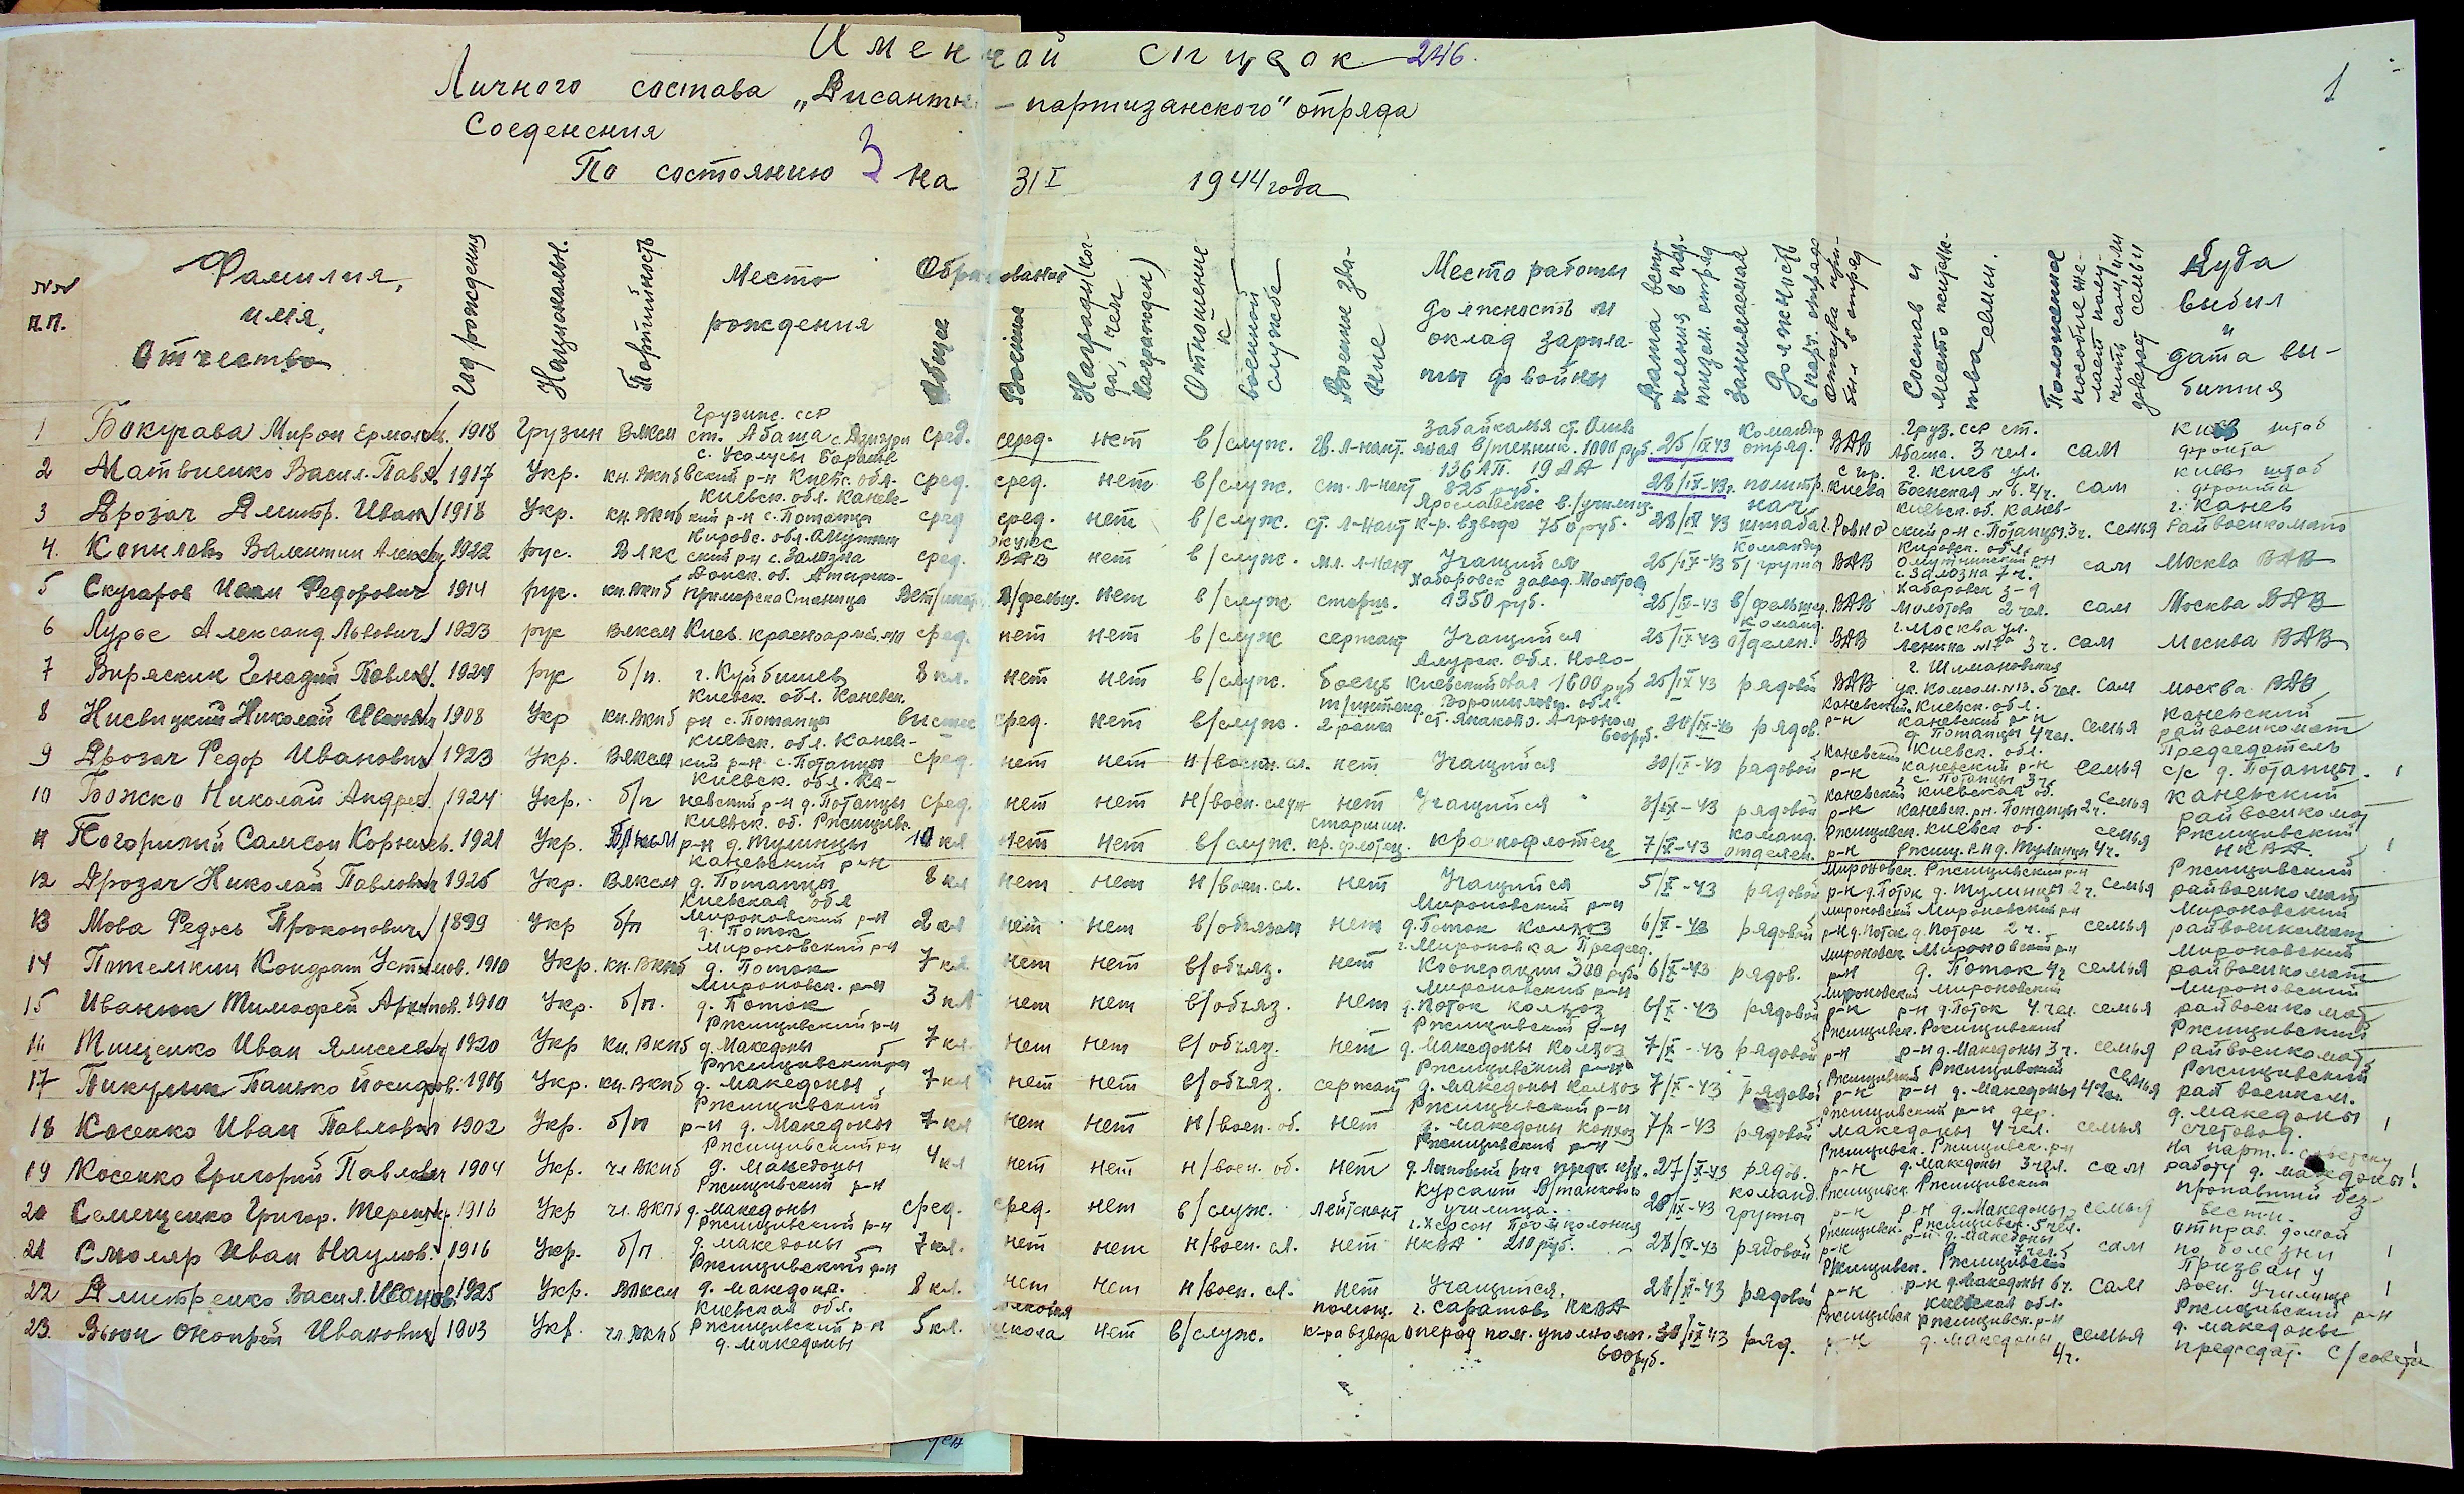 Именной список 246.
1
Личного состава „Дисантно - партизанского" отряда
Соеденения
По состоянию 3 на 31 I 1944 года
№№ п.п. Фамилия, имя, Отчество Год рождения Националън. Партийность Место рождения Образование Общее Военное Награды (когда, чем награжден) Отношение к военной службе Военное звание Место работы должность и оклад зарплаты до войны Дата вступления в партизан. отряд Занимаемая должность в парт. отряде Откуда прибыл в отряд Состав и место жительства семьи. Куда выбыл и дата выбытия
1 Бакурава Мирон Ермолаев. 1918 Грузин ВЛКСМ Грузинс. ССР ст. Абаша сред. сред. нет в/служ. гв. л-нант. 1000 руб. 25/IX 43 Командир отряд. ВДВ Груз. ССР ст. Абаша. 3 чел. сам Киев штаб фронта
2 Матвиенко Васил. Павл. 1917 Укр. кн. ВКПб Киевс. обл. сред. сред. нет в/служ. ст. л-нант 825 руб. 28/IX-43г. политр. с гор. Киева г. Киев ул. Боенская №6. 4ч. сам Киев штаб фронта
3 Дрозач Дмитр. Иван 1918 Укр. кн. ВКПб Киевск. обл. Каневский р-н с. Потапцы сред сред. нет в/служ. ст. л-нант Ярославское в./училищ. к-р. взвода 750 руб. 28/IX 43 нач. штаба г. Ровно Киевск. об. Каневский р-н с. Потапцы 3ч. семья г. Канев Райвоенкомат
4. Копилов Валентин Алексеев. 1922 рус. ВЛКС Кировс. обл. с. Залазна сред. ВДВ нет в/служ. мл. л-нант Учащийся 25/IX-43 Командир б/группа ВДВ Кировск. обл. Омутнинский рн с. Залозна 7ч. сам Москва ВДВ
5 Скугаров Иван Федорович 1914 рус. кн. ВКПб В/фельш. нет в/служ старш. Хабаровск завод. Молотова 1350 руб. 25/IX-43 в/фельшер. ВДВ Хабаровск з-д Молотова 2 чел. сам Москва ВДВ
6 Лурье Александ Львович 1923 рус ВЛКСМ Киев. красноармей. сред. нет нет в/служ сержант Учащийся 25/IX-43 команд. отделен. ВДВ г. Москва ул. Ленина №17а 3ч. сам Москва ВДВ
7 Виряскин Генадий Павлов. 1924 рус б/п. г. Куйбишев 8 кл. нет нет в/служ. боець Амурск. обл. Ново-Киевский 1600 руб 25/IX 43 рядовой ВДВ г. Шимановская ук. Комсом. №13. 5 чел. сам Москва ВДВ
8 Нисвицкий Николай Иванович 1908 Укр кн. ВКПб Киевск. обл. Каневск. рн с. Потапцы высшее сред. нет в/служ. т/интенд. 2 ранга Ворошиловгр. обл. Агроном 600 руб. 30/IX-43 рядов. Каневский р-н Киевск. обл. Каневский р-н д. Потапцы 4 чел. семья Каневский райвоенкомат
9 Дрозач Федор Иванович 1923 Укр. ВЛКСМ Киевск. обл. Каневский р-н с. Потапцы сред. нет нет н/воен. сл. нет Учащийся 30/IX-43 рядовой Каневский р-н Киевск. обл. Каневский р-н с. Потапцы 3ч. семья Председатель с/с д. Потапцы. !
10 Божко Николай Андрее. 1924 Укр. б/п Киевск. обл. Каневский р-н д. Потапцы сред. нет нет н/воен. служ нет Учащийся 3/IX-43 рядовой Каневский р-н Киевская об. Каневск. рн. Потапцы 2ч. семья Каневский райвоенкомат
11 Погорилий Самсон Корнеев. 1921 Укр. Киевск. об. Ржищевск. р-н д. Тулинцы 10 кл нет нет в/служ. старшин. кр. флотец. краснофлотец 7/X-43 команд. отделен. Ржищевск. р-н Киевск об. Ржищ. р-н д. Тулинцы 4ч. семья Ржищивский НКВД. !
12 Дрозач Николай Павлович 1925 Укр. ВЛКСМ Каневский р-н д. Потапцы 8 кл нет нет н/воен. сл. нет Учащийся 5/X-43 рядовой Мироновск. р-н д. Поток Ржищивский р-н д. Тулинцы 2ч. семья Ржищивский райвоенкомат
13 Мова Федось Прокопович 1899 Укр б/п Киевская обл Мироновский р-н д. Поток 2 кл нет нет в/обязан нет Мироновский р-н д. Поток колхоз 6/X-43 рядовой Мироновский р-н д. Поток Мироновский рн д. Поток 2ч. семья Мироновский райвоенкомат
14 Потемкин Кондрат Устимов. 1910 Укр. кн. ВКПб Мироновский р-н д. Поток 7 кл нет нет в/обяз. нет г. Мироновка Председ. Кооперации 300 руб. 6/X-43 рядов. Мироновск р-н Мироновский р-н д. Поток 4ч семья Мироновский райвоенкомат
15 Иванюк Тимофей Архипов. 1910 Укр. б/п. Мироновск. р-н д. Поток 3 кл нет нет в/обяз. нет Мироновский р-н д. Поток колхоз 6/X-43 рядовой Мироновский р-н Мироновский р-н д. Поток 4 чел. семья Мироновский райвоенкомат
16 Тищенко Иван Елисеевич 1920 Укр кн. ВКПб Ржищивский р-н д. Македоны 7 кл. нет нет в/обяз. нет Ржищивский р-н д. Македоны колхоз 7/X-43 рядовой Ржищивск. р-н Ржищивский р-н д. Македоны 3ч. семья Ржищивский райвоенкомат
17 Пикулик Панько Йосипов. 1906 Укр. кн. ВКПб Ржищивский рн д. Македоны 7 кл нет нет в/обяз. сержант Ржищивский р-н д. Македоны колхоз 7/X-43 рядовой Ржищивский р-н Ржищивский р-н д. Македоны 4 чел. семья Ржищивский рай военком.
18 Косенко Иван Павлович 1902 Укр. б/п Ржищивский р-н д. Македоны 7 кл нет нет н/воен. об. нет Ржищивский р-н д. Македоны колхоз 7/X-43 рядовой Ржищивский р-н дер. Македоны 4 чел. семья д. Македоны счетовод. !
19 Косенко Григорий Павлович 1904 Укр. чл ВКПб Ржищивский рн д. Македоны 4 кл нет нет н/воен. об. нет Ржищивский р-н 27/IX-43 рядов. Ржищивск. р-н Ржищивск. рн д. Македоны 3 чел. сам На парт. советску работу д. Македоны!
20 Семещенко Григор. Терентьев. 1916 Укр чл. ВКПб Ржищивский р-н д. Македоны сред. сред. нет в/служ. лейтенант Курсант В/танкового училища. 28/IX-43 команд. группы Ржищивск р-н Ржищивский р-н д. Македоны семья пропавший без-вести
21 Смоляр Иван Наумов. 1916 Укр. б/п Ржищивский р-н д. Македоны 7 кл. нет нет н/воен. сл. нет г. Херсон Пром колония НКВД 210 руб. 28/IX-43 рядовой Ржищивск. р-н Ржищивск. р-н д. Македоны 7 чел. сам отправ. домой по болезни !
22 Дмитренко Васил. Иванов. 1925 Укр. ВЛКСМ Ржищивский р-н д. Македоны. 8 кл. нет нет н/воен. сл. нет Учащийся. 28/IX-43 рядовой Ржищивск. р-н Ржищивский р-н д. Македоны 6ч. сам Призван у воен. Училище !
23. Вьюн Онопрей Иванович 1903 Укр. чл. ВКПб Киевская обл. Ржищивский р-н д. Македоны 5 кл. полковая школа нет в/служ. помощ. к-ра взвода г. Саратов НКВД оперод пом. уполномоч. 600 руб. 30/IX 43 ряд. Ржищивск р-н Киевская обл. Ржищивск. р-н д. Македоны 4ч. семья Ржищивский р-н д. Македоны председат. с/совета !